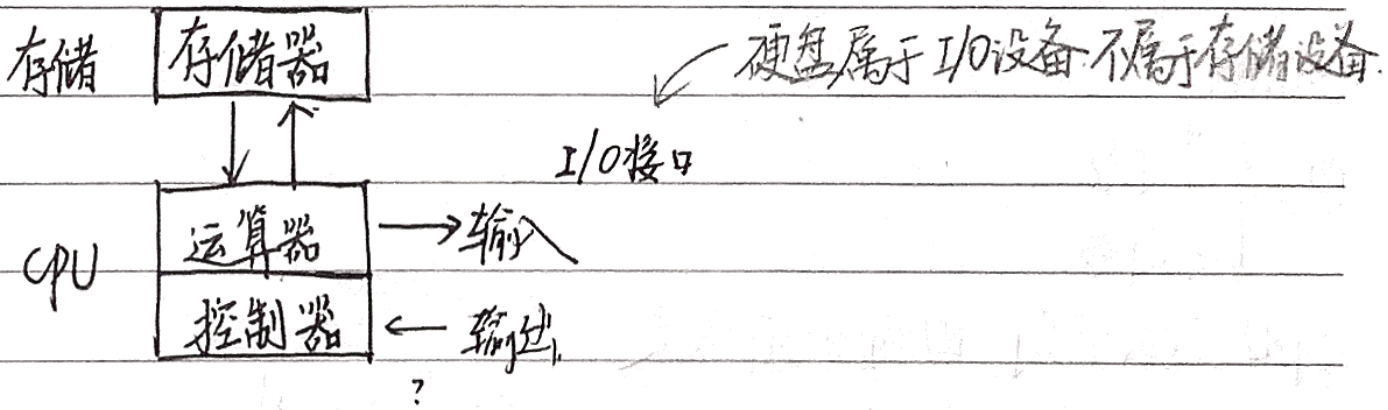 存储 存储器 硬盘属于 I/O设备 不属于存储设备.
I/O接口
CPU 运算器 → 输入
控制器 ← 输出
?